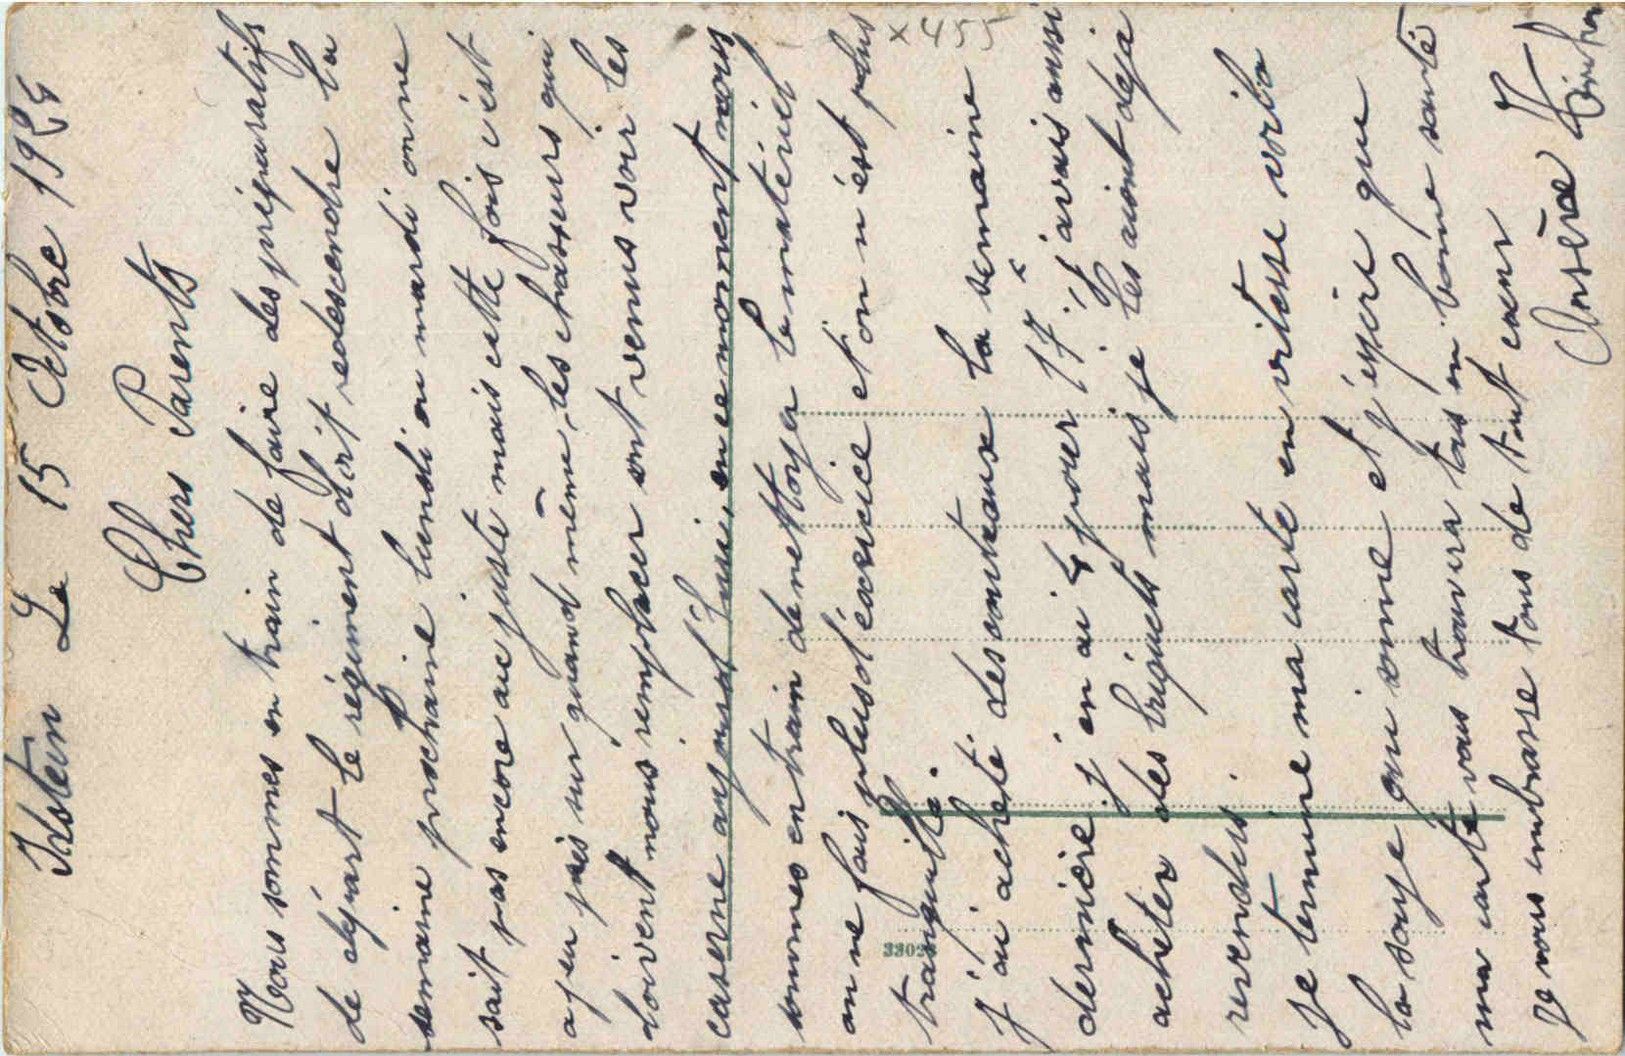 Idstein Le 15 Octobre 1924
Chers Parents
Nous sommes en train de faire des préparatifs
de départ le régiment doit redescendre la
semaine prochaine lundi ou mardi on ne
sait pas encore au juste mais cette fois c'est
a peu près sur quand même, les chasseurs qui
doivent nous remplacer sont venus voir les
caserne aujourd'hui, en ce moment nous
sommes en train de nettoyer le matériel
on ne fais plus d'éxercice et on n'est plus
tranquille.
j'ai acheté des couteaux la semaine
dernière j'en ai 4 pour 17. j'avais aussi
acheter des briquets mais je les aient déjà
revendus
je termine ma carte en vitesse voila
la soupe qui sonne et j'éspère que
ma carte vous trouvera tous en bonne santé
je vous embrasse tous de tout cœur
x455
3302